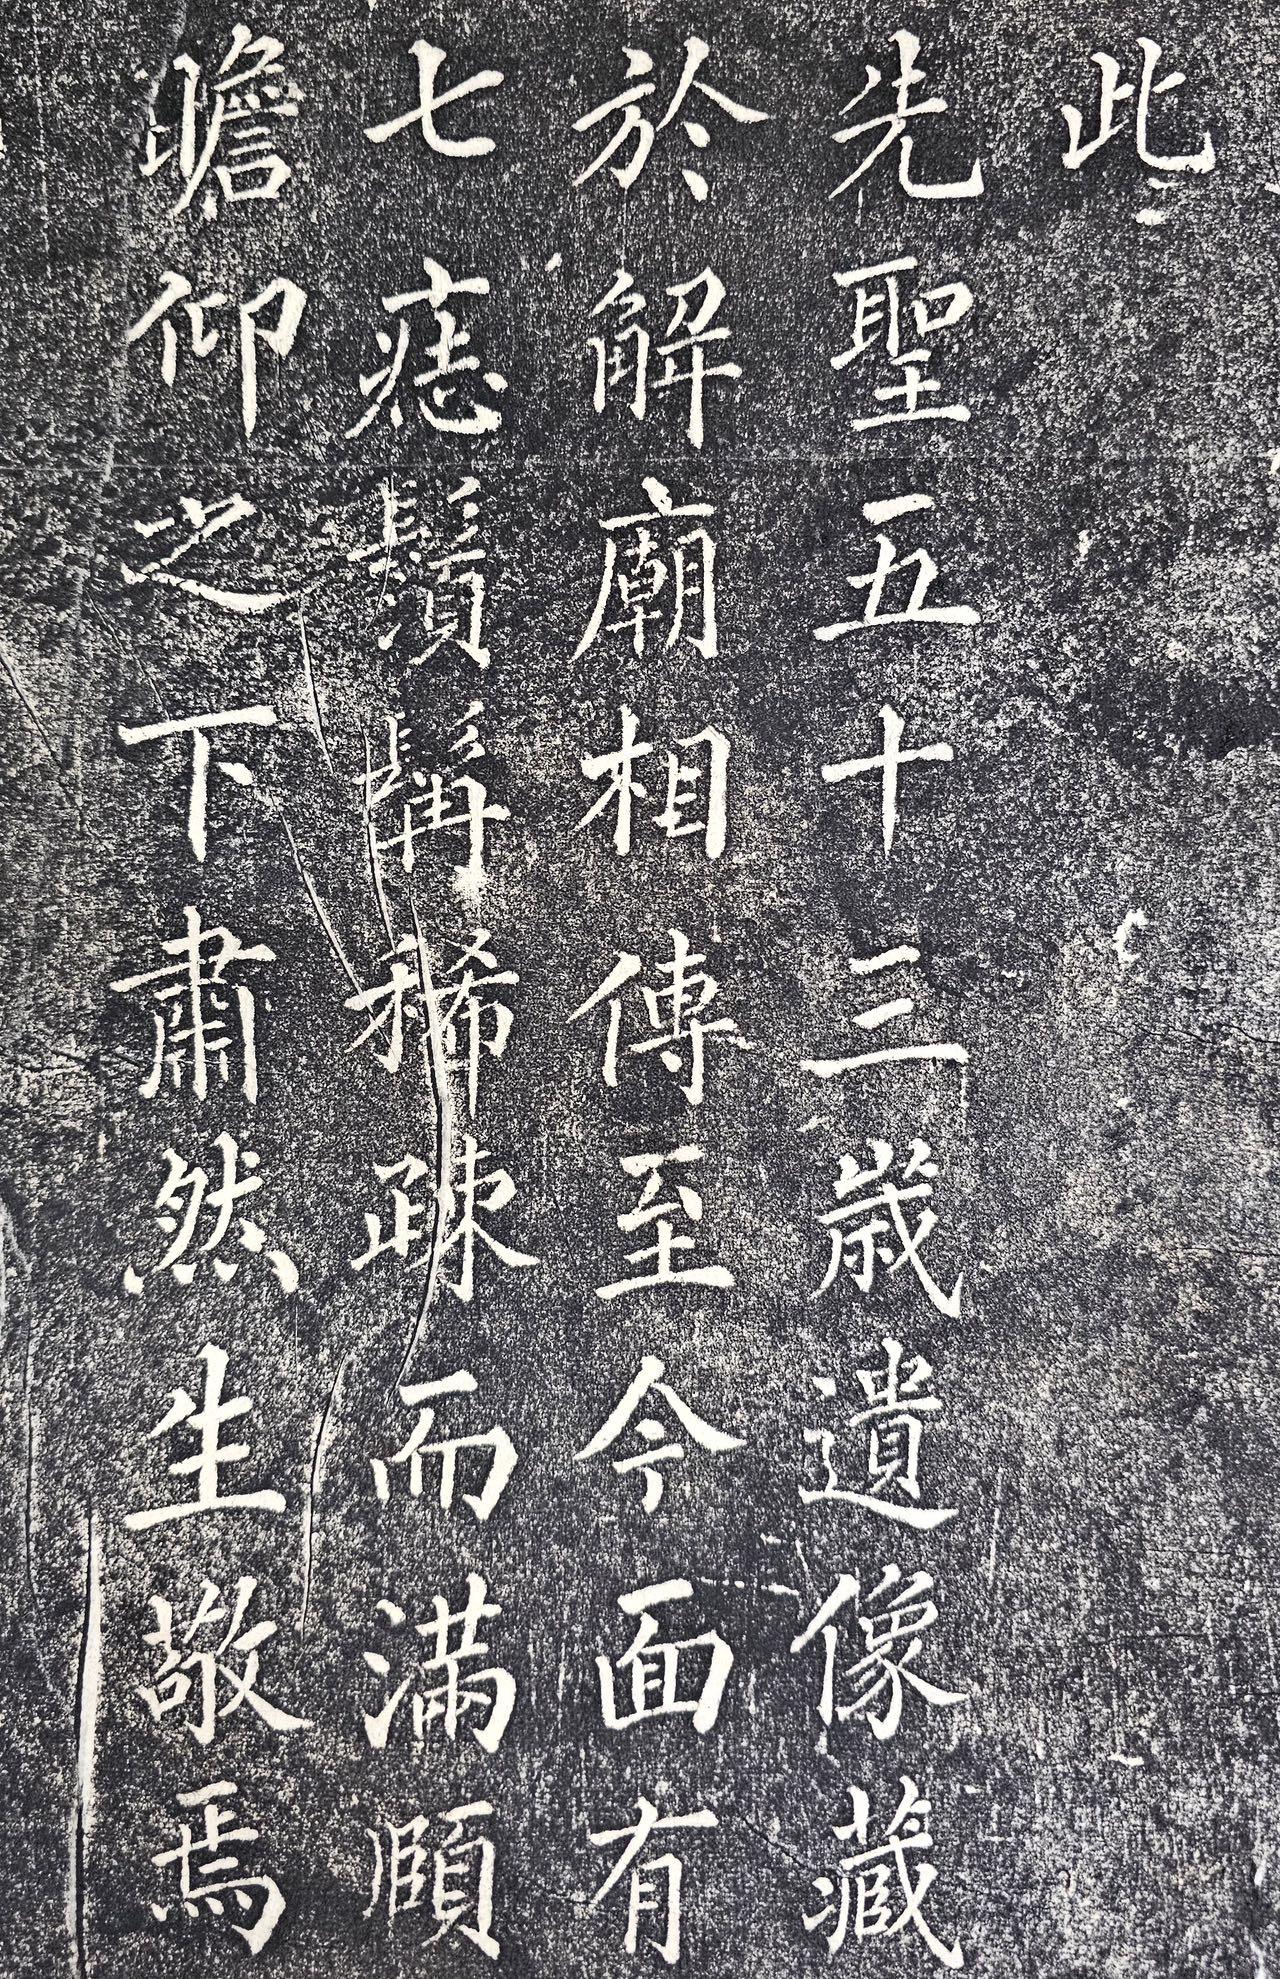 此
先聖五十三歲遺像藏
於解廟相傳至今面有
七痣鬚髯稀疎而滿頤
瞻仰之下肅然生敬焉